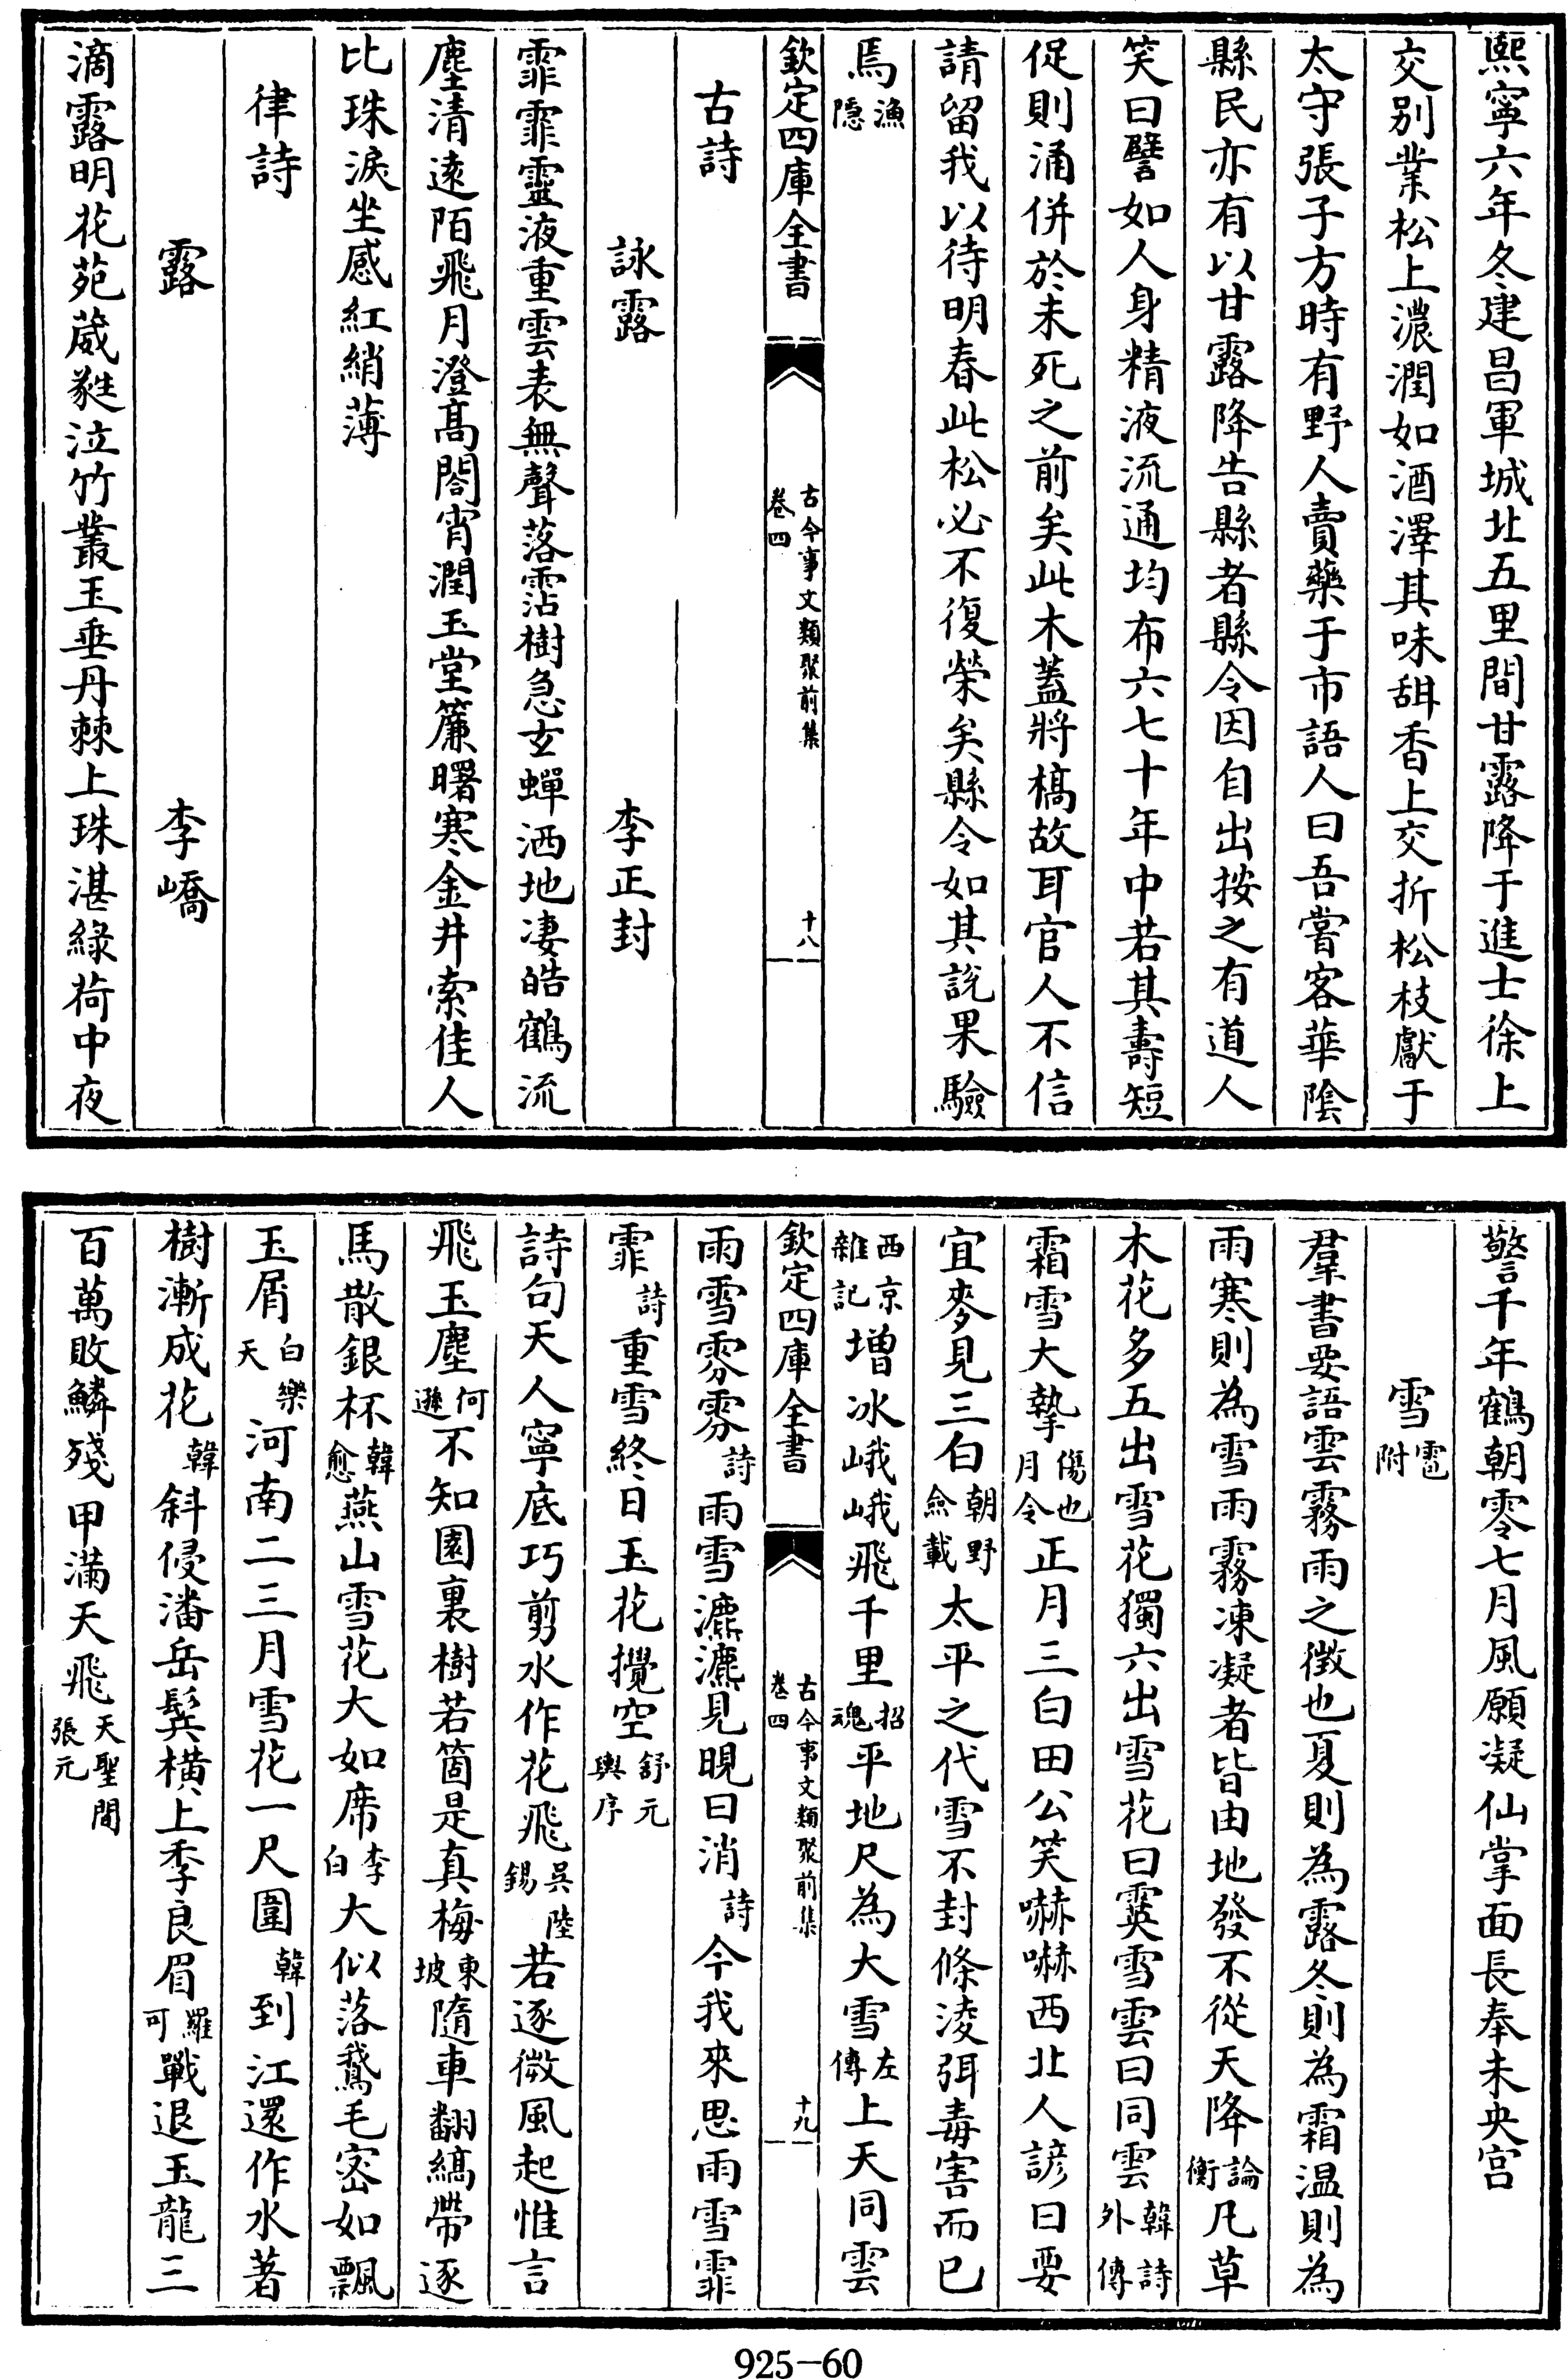 熙寧六年冬建昌軍城北五里間甘露降于進士徐上
交别業松上濃潤如酒澤其味甜香上交折松枝獻于
太守張子方時有野人賣藥于市語人曰吾嘗客華隂
縣民亦有以甘露降告縣者縣令因自出按之有道人
笑曰譬如人身精液流通均布六七十年中若其壽短
促則涌併於未死之前矣此木蓋將槁故耳官人不信
請留我以待明春此松必不復榮矣縣令如其説果驗
焉漁隠
欽定四庫全書 古今事文類聚前集 卷四 十八
古詩
詠露 李正封
霏霏靈液重雲表無聲落霑樹急玄蟬洒地凄皓鶴流
塵清逺陌飛月澄髙閤宵潤玉堂簾曙寒金井索佳人
比珠淚坐感紅綃薄
律詩
露 李嶠
滴露明花苑葳蕤泣竹叢玉垂丹棘上珠湛緑荷中夜
警千年鶴朝零七月風願凝仙掌面長奉未央宫
雪雹附
羣書要語雲霧雨之徵也夏則為露冬則為霜温則為
雨寒則為雪雨霧凍凝者皆由地發不從天降論衡凡草
木花多五出雪花獨六出雪花曰霙雪雲曰同雲韓詩外傳
霜雪大摯傷也月令正月三白田公笑嚇嚇西北人諺曰要
宜麥見三白朝野僉載太平之代雪不封條淩弭毒害而已
西京雜記增冰峨峨飛千里招魂平地尺為大雪左傳上天同雲
欽定四庫全書 古今事文類聚前集 卷四 十九
雨雪雰雰詩雨雪瀌瀌見晛曰消詩今我來思雨雪霏
霏詩重雪終日玉花攪空舒元輿序
詩句天人寧底巧剪水作花飛吳陸錫若逐微風起惟言
飛玉塵何遜不知園裏樹若箇是真梅東坡隨車翻縞帶逐
馬散銀杯韓愈燕山雪花大如席李白大似落鵞毛宻如飄
玉屑白樂天河南二三月雪花一尺圍韓到江還作水著
樹漸成花韓斜侵潘岳鬂横上季良眉羅可戰退玉龍三
百萬敗鱗殘甲滿天飛天聖間張元
925—60